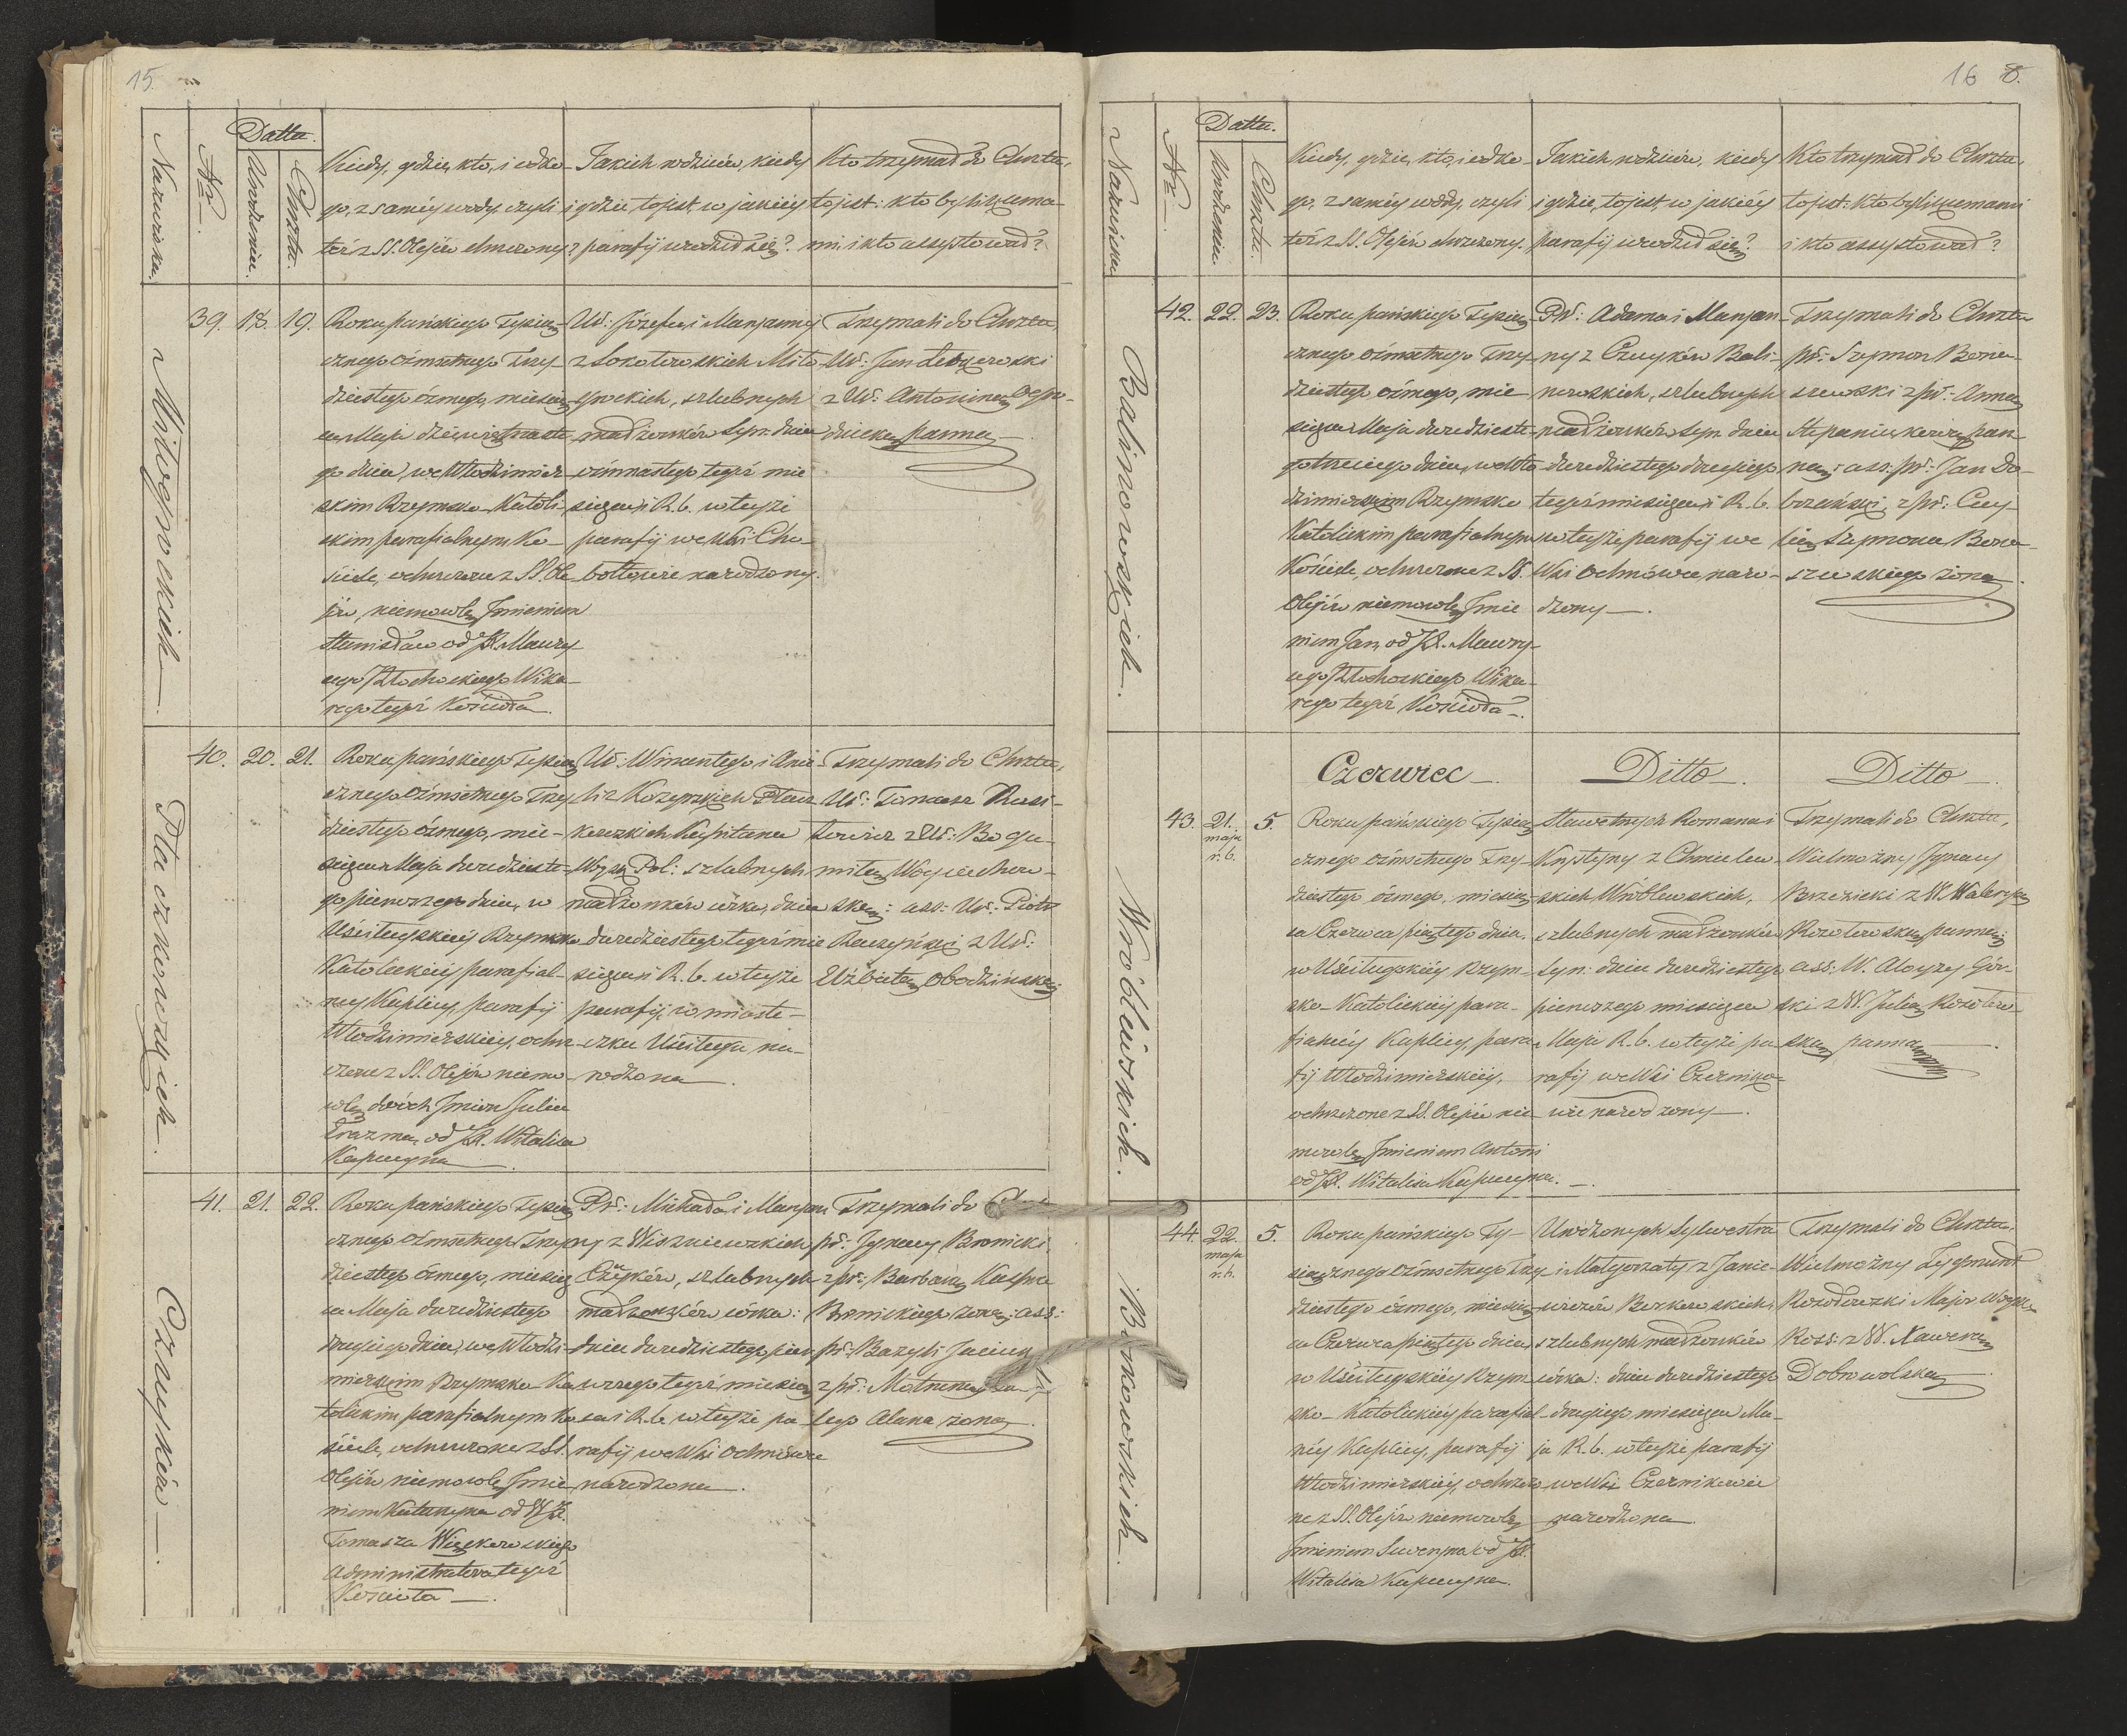 15.
Nazwiska.
Nr
Datta.
Urodzenia.
Chrztu.
Kiedy, gdzie, kto, i od ko-
go, z samej wody, czyli
też z SS. Olejów chrzczony?
Jakich rodziców, kiedy
i gdzie, to jest, w jakiéj
parafij urodził się?
Kto trzymał do Chrztu,
to jest: kto byli kuma-
mi, i kto assystował?
39. 18. 19.
Roku pańskiego Tysiąc
cznego ośmsetnego Trzy-
dziestego ósmego, miesią-
ca Maja dziewiętnaste-
go dnia, we Włodzimier-
skim Rzymsko-Katoli-
ckim parafialnym Ko-
ściele, ochrzczone z SS. Ole-
jów, niemowlę Imieniem
Stanisław od JX. Maury-
cego Wika-
rego tegoż Kościoła.
Ur: Józefa i Maryanny
z Sokołowskich
szlubnych
małżonków Syn: dnia
ośmnastego tegoż mie-
siąca i R. b. w tejże
parafij we Wsi Cho-
bołtowie narodzony.
Trzymali do Chrztu,
Ur: Jan
z Ur: Antoniną
panną
40. 20. 21.
Dłaczkowskich.
Roku pańskiego Tysiąc
cznego ośmsetnego Trzy-
dziestego ósmego, mie-
siąca Maja dwudzieste-
go pierwszego dnia, w
Uściługskiéj Rzymsko
Katolickiéj parafial-
néj Kaplicy, parafij
Włodzimierskiéj, ochrz-
czone z SS. Olejów niemo-
wlę dwóch Imion Julia
Erazma, od JX. Witalisa
Kapucyna
Ur: Wincentego i Anie-
li z
Kapitana
Woysk Pol: szlubnych
małżonków córka, dnia
dwudziestego tegoż mie-
siąca i R. b. w tejże
parafij, w miaste-
czku Uściługu na-
rodzona.
Trzymali do Chrztu,
Ur: Tomasz
z Ur: Bogu-
miłą Woyciechow-
ską: ass: Ur: Piotr
Raczyński z Ur:
Elżbietą Obodzińską
41. 21. 22.
Czuyków.
Roku pańskiego Tysiąc
cznego ośmsetnego Trzy-
dziestego ósmego, miesią-
ca Maja dwudziestego
drugiego dnia, we Włodzi-
mierskim Rzymsko-Ka-
tolickim parafialnym Ko-
ściele, ochrzczone z SS.
Olejów niemowlę Imie-
niem Katarzyna od WJX.
Tomasza Więckowskiego
Administratora tegoż
Kościoła.
Pr: Michała i Maryan-
ny z Wiszniewskich
Czuyków, szlubnych
małżonków córka:
dnia dwudziestego pier-
wszego tegoż miesią-
ca i R. b. w tejże pa-
rafij we Wsi Ochnówce
narodzona.
Trzymali do
pr: Ignacy Bronicki
z pr: Barbarą
Bronickiego żoną; ass:
pr: Bazyli
z pr:
żoną
16 8.
Nazwiska
Nr
Datta.
Urodzenia.
Chrztu.
Kiedy, gdzie, kto, i od ko-
go, z samej wody, czyli
też z SS. Olejów chrzczony.
Jakich rodziców, kiedy
i gdzie, to jest, w jakiéj
parafij urodził się?
Kto trzymał do Chrztu,
to jest: kto byli kumami
i kto assystował?
42. 22. 23.
Balinowskich.
Roku pańskiego Tysiąc
cznego ośmsetnego Trzy-
dziestego ósmego, mie-
siąca Maja dwudzieste-
go trzeciego dnia, we Wło-
dzimierskim Rzymsko
Katolickim parafialnym
Kościele, ochrzczone z SS.
Olejów niemowlę Imie-
niem Jan, od JX. Maury-
cego Wika-
rego tegoż Kościoła.
Pr: Adama i Maryan-
ny z Czuyków Bali-
nowskich, szlubnych
małżonków Syn dnia
dwudziestego drugiego
tegoż miesiąca i R. b.
w tejże parafij we
Wsi Ochnówce naro-
dzony.
Trzymali do Chrztu
pr: Szymon
z pr: Anną
pan-
ną: ass: pr: Jan Do-
brzański, z pr:
Szymona
żoną
Czerwiec.
Ditto.
Ditto.
43. 21. maja r. b. 5.
Wróblewskich.
Roku pańskiego Tysiąc
cznego ośmsetnego Trzy-
dziestego ósmego, miesią-
ca Czerwca piątego dnia,
w Uściługskiéj Rzym-
sko-Katolickiéj para-
fialnéj Kaplicy, para-
fij Włodzimierskiéj,
ochrzczone z SS. Olejów nie-
mowlę Imieniem Antoni
od JX. Witalisa Kapucyna.
Sławetnych Romana i
Krystyny z Chmielew-
skich Wróblewskich,
szlubnych małżonków
Syn: dnia dwudziestego
pierwszego miesiąca
Maja R. b. w tejże pa-
rafij we Wsi Czerniko-
wie narodzony.
Trzymali do Chrztu,
Wielmożny Ignacy
Brzezicki z W. Waleryą
panną;
ass: W. Aloyzy Gór-
ski z W. Julią
panną
44. 22. maja r. b. 5.
Binkowskich.
Roku pańskiego Ty-
siącznego ośmsetnego Trzy-
dziestego ósmego, miesią-
ca Czerwca piątego dnia,
w Uściługskiéj Rzym-
sko-Katolickiéj parafial-
néj Kaplicy, parafij
Włodzimierskiéj, ochrzczo-
ne z SS. Olejów niemowlę
Imieniem Seweryna od JX.
Witalisa Kapucyna.
Urodzonych Sylwestra
i Małgorzaty z Janie-
szlubnych małżonków
córka: dnia dwudziestego
drugiego miesiąca Ma-
ja R. b. w tejże parafij
we Wsi Czernikowie
narodzona.
Trzymali do Chrztu,
Wielmożny Zygmunt
Major Woysk
Ross: z W. Xawerą
Dobrowolską